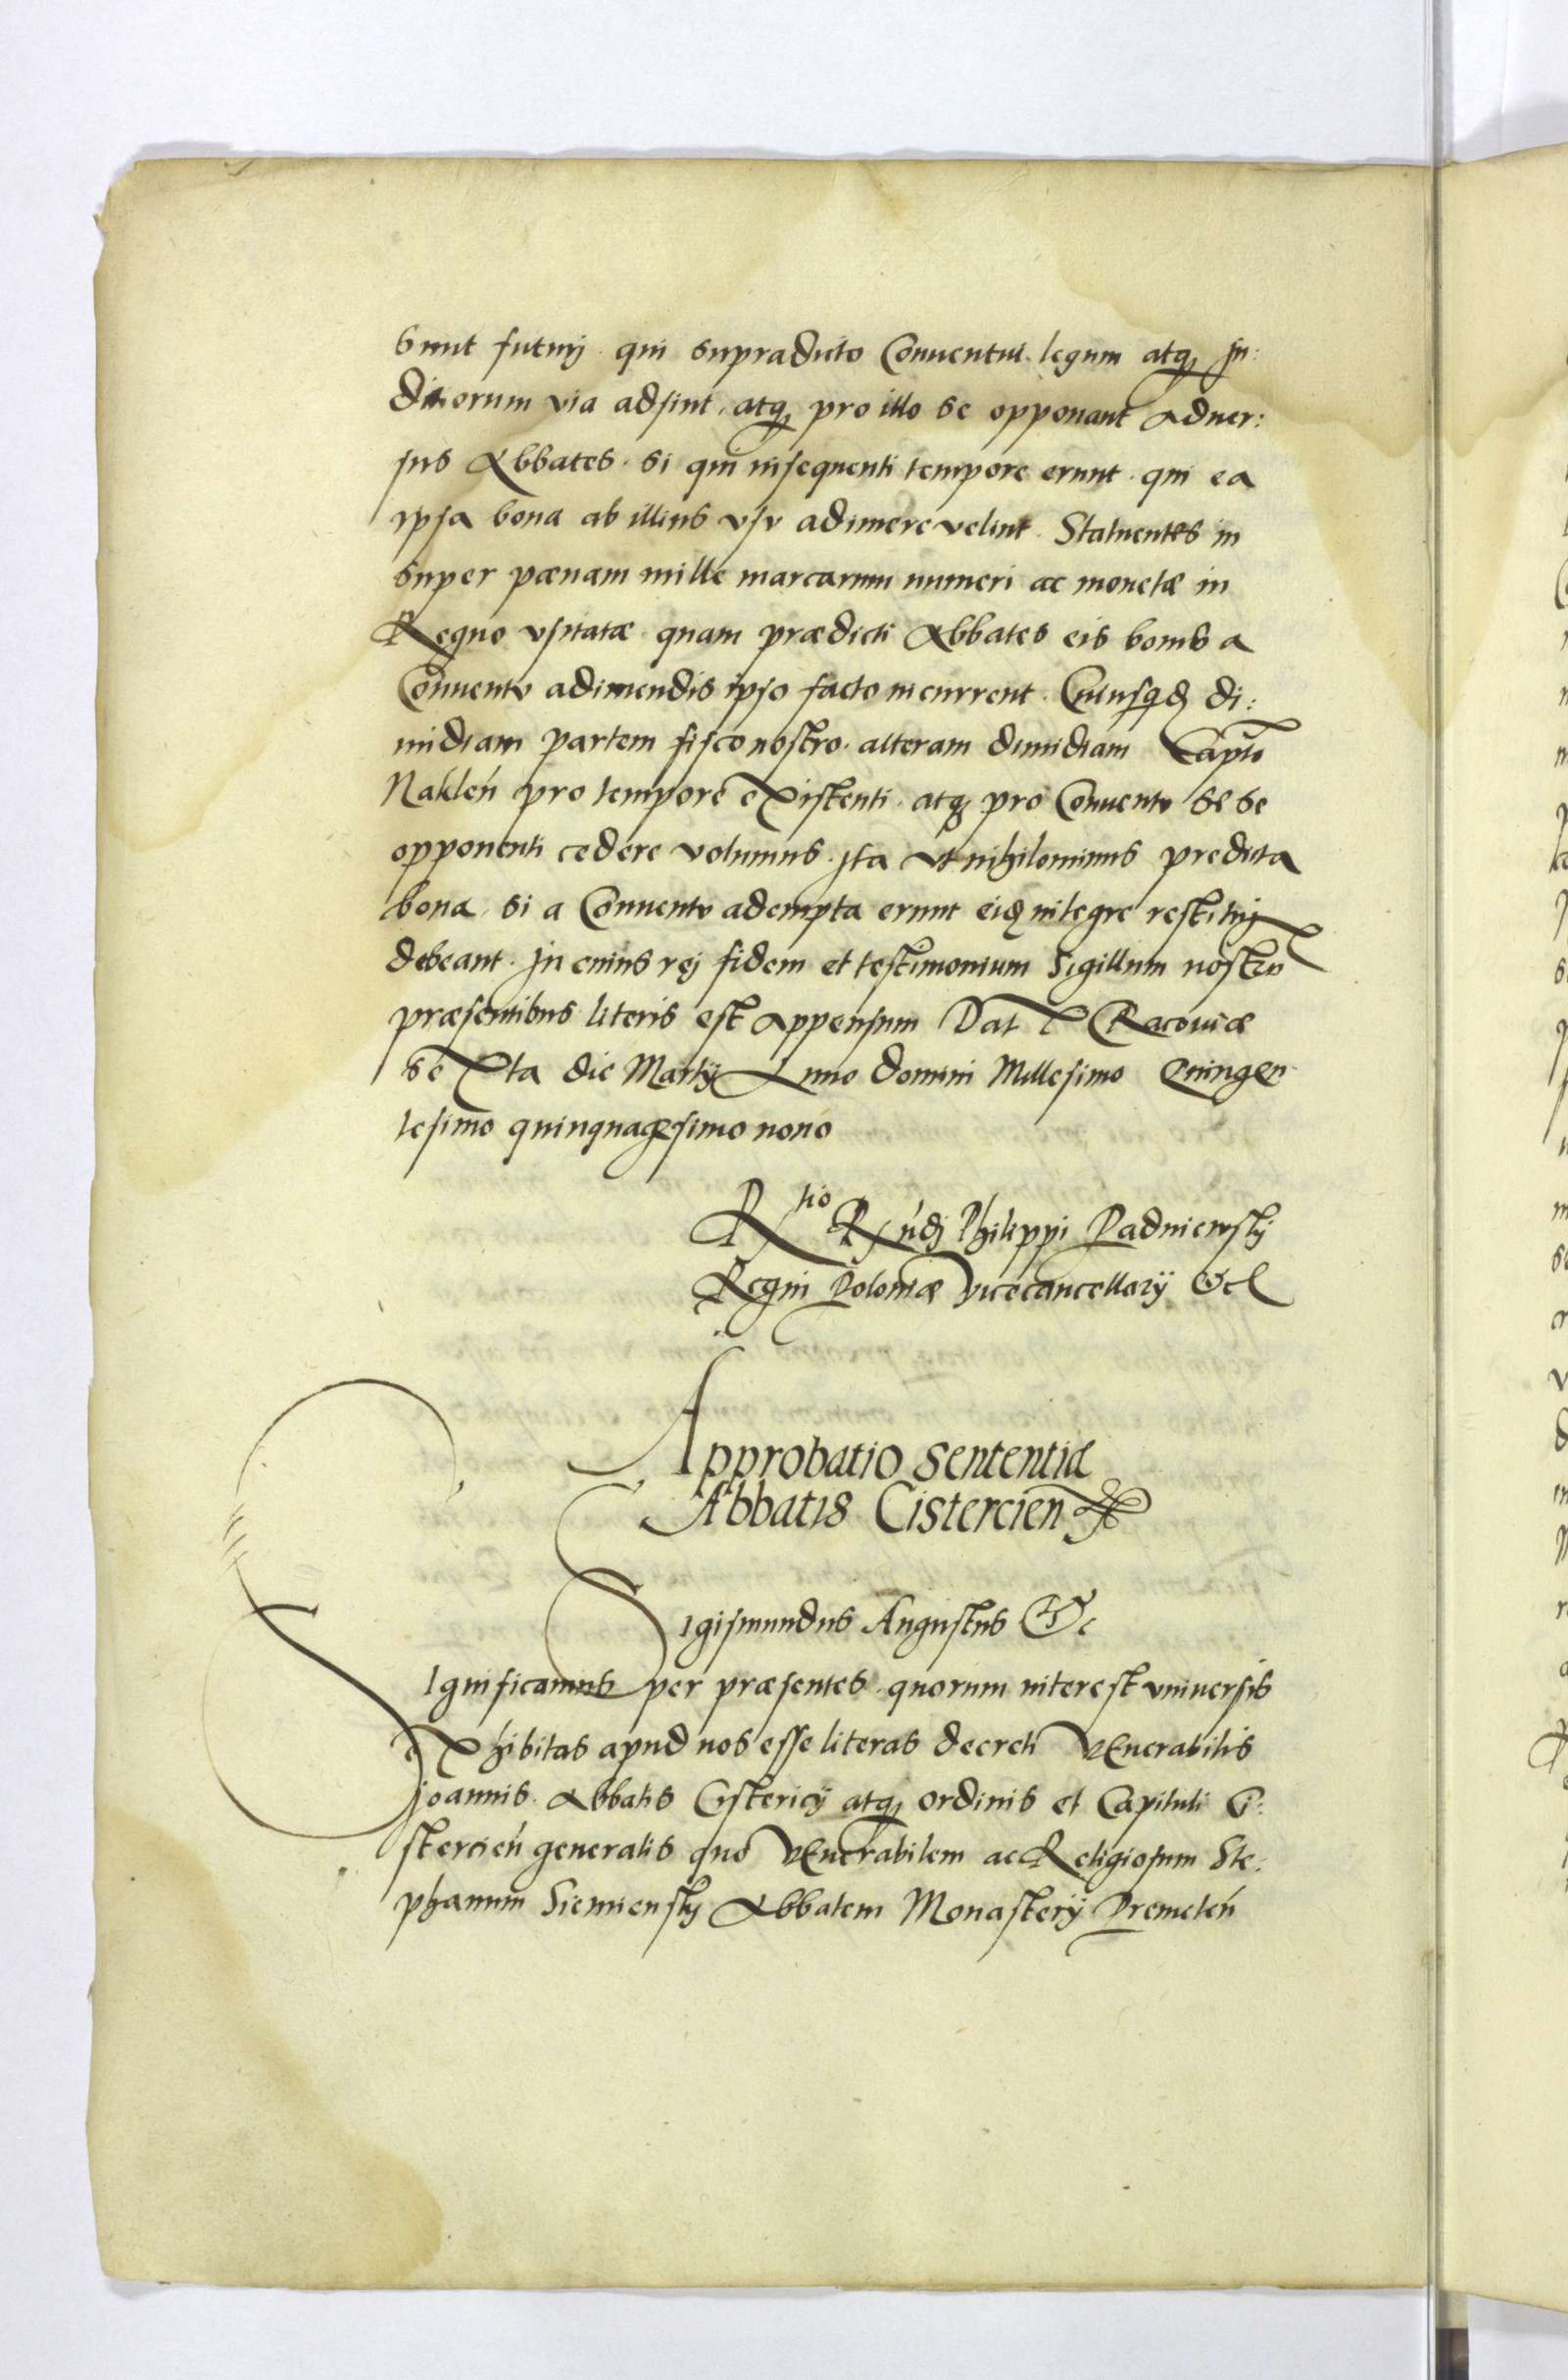 sunt futurj qui supradicto Conuentui legum atq Ju:
diciorum via adsint, atq pro illo se opponant aduer:
sus Abbates. si qui insequenti tempore erunt. qui ea
ipsa bona ab illius vsv adimere velint. Statuentes in
super pænam mille marcarum numeri ac monetæ in
Regno vsitatæ quam prædicti Abbates eis bonis a
Conuentv adimendis ipso facto incurrent. Cuiusqz di:
midiam partem fisco nostro. alteram dimidiam Capto
Naklen pro tempore existenti. atq pro Conuentv sese
opponenti cedere volumus. Ita vt nihilominus predicta
bona. si a Conuentv adempta erunt eiq integre restituj
debeant. In cuius rej fidem et testimonium Sigillum nostru
præsentibus literis est appensum Dat Cracouiæ
sexta die Martij Anno Domini Millesimo Quingen
tesimo quinquagesimo nono
Rtio Rundj Philippi Padniewskj
Regni Poloniæ Vicecancellarij Etc
Approbatio sententiæ
Abbatis Cistercien
Sigismundus Augustus Etc
Significamus per præsentes quorum interest vniuersis
exhibitas apud nos esse literas decreti Venerabilis
Joannis. Abbatis Cystercij atq ordinis et Capituli Ci:
stercien generalis quo Venerabilem ac Religiosum Ste:
phanum Siemienskj Abbatem Monasterij Premeten